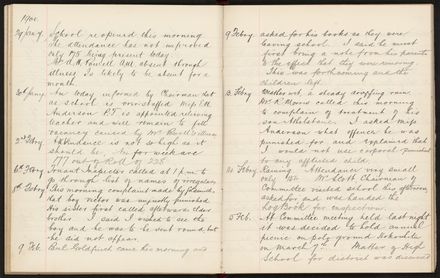 1900.
School reopened this morning
the attendance has not improved
only 175 being present today.
Mr. A. H. Powell absent through
illness. Is likely to be absent for a
month.
Am today informed by Chairman that
as school is overstaffed Miss
Anderson P.T. is appointed relieving
teacher and will remain to fill
vacancy caused by Mr. Powell's illness
Attendance is not as high as it
should be. In for week are
177 out of Roll of 228
6th Febry Truant Inspector called at 1 p.m. to
go through list of names of irregulars
This morning complaint made by
that boy Victor was unjustly punished.
His sister first called afterwards elder
brother. I said I wished to see the
boy and he was to be sent round, but
he did not appear.
9 Feb. Paul Goldfinch came his morning and
9 Febry asked for his books as they were
leaving school. I said he must
first bring a note from his parents
to the effect that they were removing.
This was forthcoming and the
children left.
13 Febry Matters wet, a steady dropping rain.
Mrs. R. Morris called this morning
to complain of treatment of his
son. I asked Miss
Anderson what offence he was
punished for and explained that
I would not use corporal punishment
to any afflicted child.
14 Febry Raining. Attendance very small
only 130. Mr. Scott Chairman of
Committee visited school this afternoon
asked for and was handed the
Log Book for inspection.
15 Feb. At Committee meeting held last night
it was decided to hold annual
picnic in polo ground Hobsonville
on March 7th. Matter of High
School for district was discussed